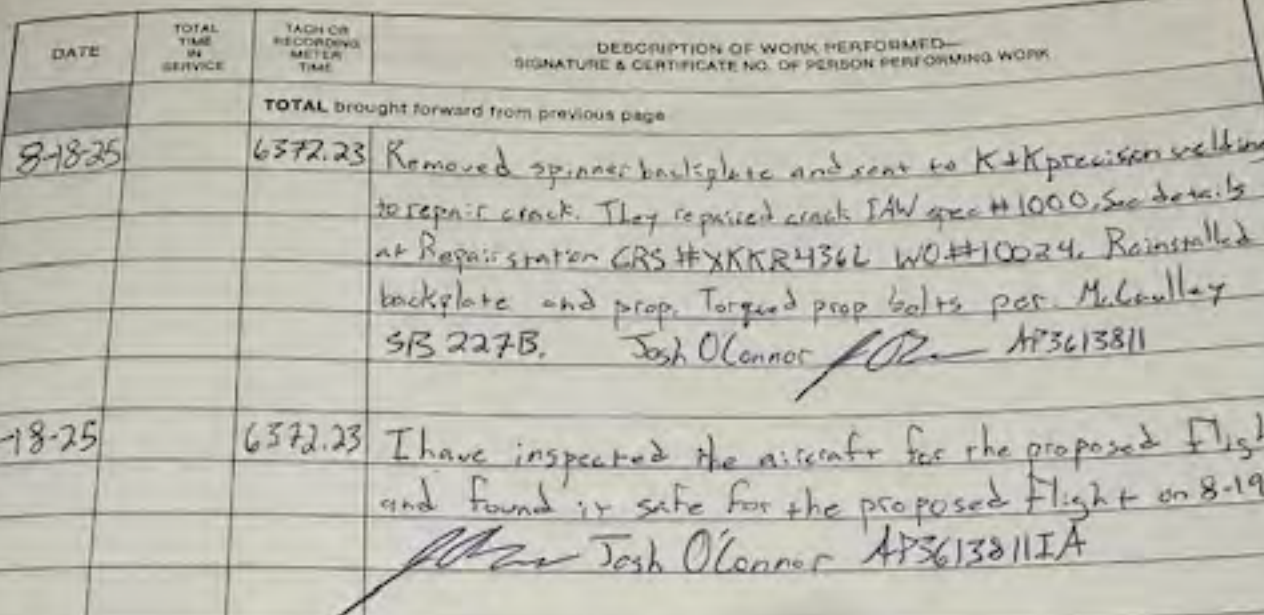 DATE
TOTAL TIME IN SERVICE
TACH OR RECORDING METER TIME
DESCRIPTION OF WORK PERFORMED—
SIGNATURE & CERTIFICATE NO. OF PERSON PERFORMING WORK
TOTAL brought forward from previous page
8-18-25 6372.23 Removed spinner backplate and sent to K+K precision welding
to repair crack. They repaired crack IAW spec #1000. See details
at Repair station CRS #XKKR436L WO#10024. Reinstalled
backplate and prop. Torqued prop bolts per McCaulley
SB 227B. Josh O'Connor AP3613811
-18-25 6372.23 I have inspected the aircraft for the proposed Fligh
and found it safe for the proposed Flight on 8-19
Josh O'Connor AP3613811IA